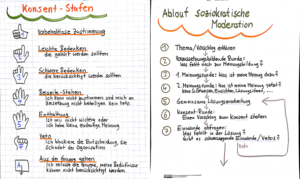 Konsent-Stufen
Vorbehaltlose Zustimmung
Leichte Bedenken
die gehört werden sollten
Schwere Bedenken
die berücksichtigt werden sollten
Beiseite-Stehen
Ich kann nicht zustimmen und mich an
Umsetzung nicht beteiligen. Kein Veto.
Enthaltung
Ist mir nicht wichtig oder
ich habe keine eindeutige Meinung
Veto
Ich blockiere die Entscheidung, sie
schadet der Organisation
Aus der Gruppe gehen
Ich verlasse die Gruppe, meine Bedürfnisse
können nicht berücksichtigt werden
Ablauf soziokratische
Moderation
1 Thema/Vorschlag erklären
2 Runde:
Was fehlt noch zur Meinungsbildung?
3 1. Meinungsrunde: Was ist meine Meinung dazu?
4 2. Meinungsrunde: Was ist meine Meinung jetzt?
5 Gemeinsame Lösungserarbeitung
6 Konsent-Runde:
Einen Vorschlag zum Konsent stellen
7 Einwände abfragen:
Was fehlt in der Lösung?
Gibt es schwerwiegende Einwände/Vetos?